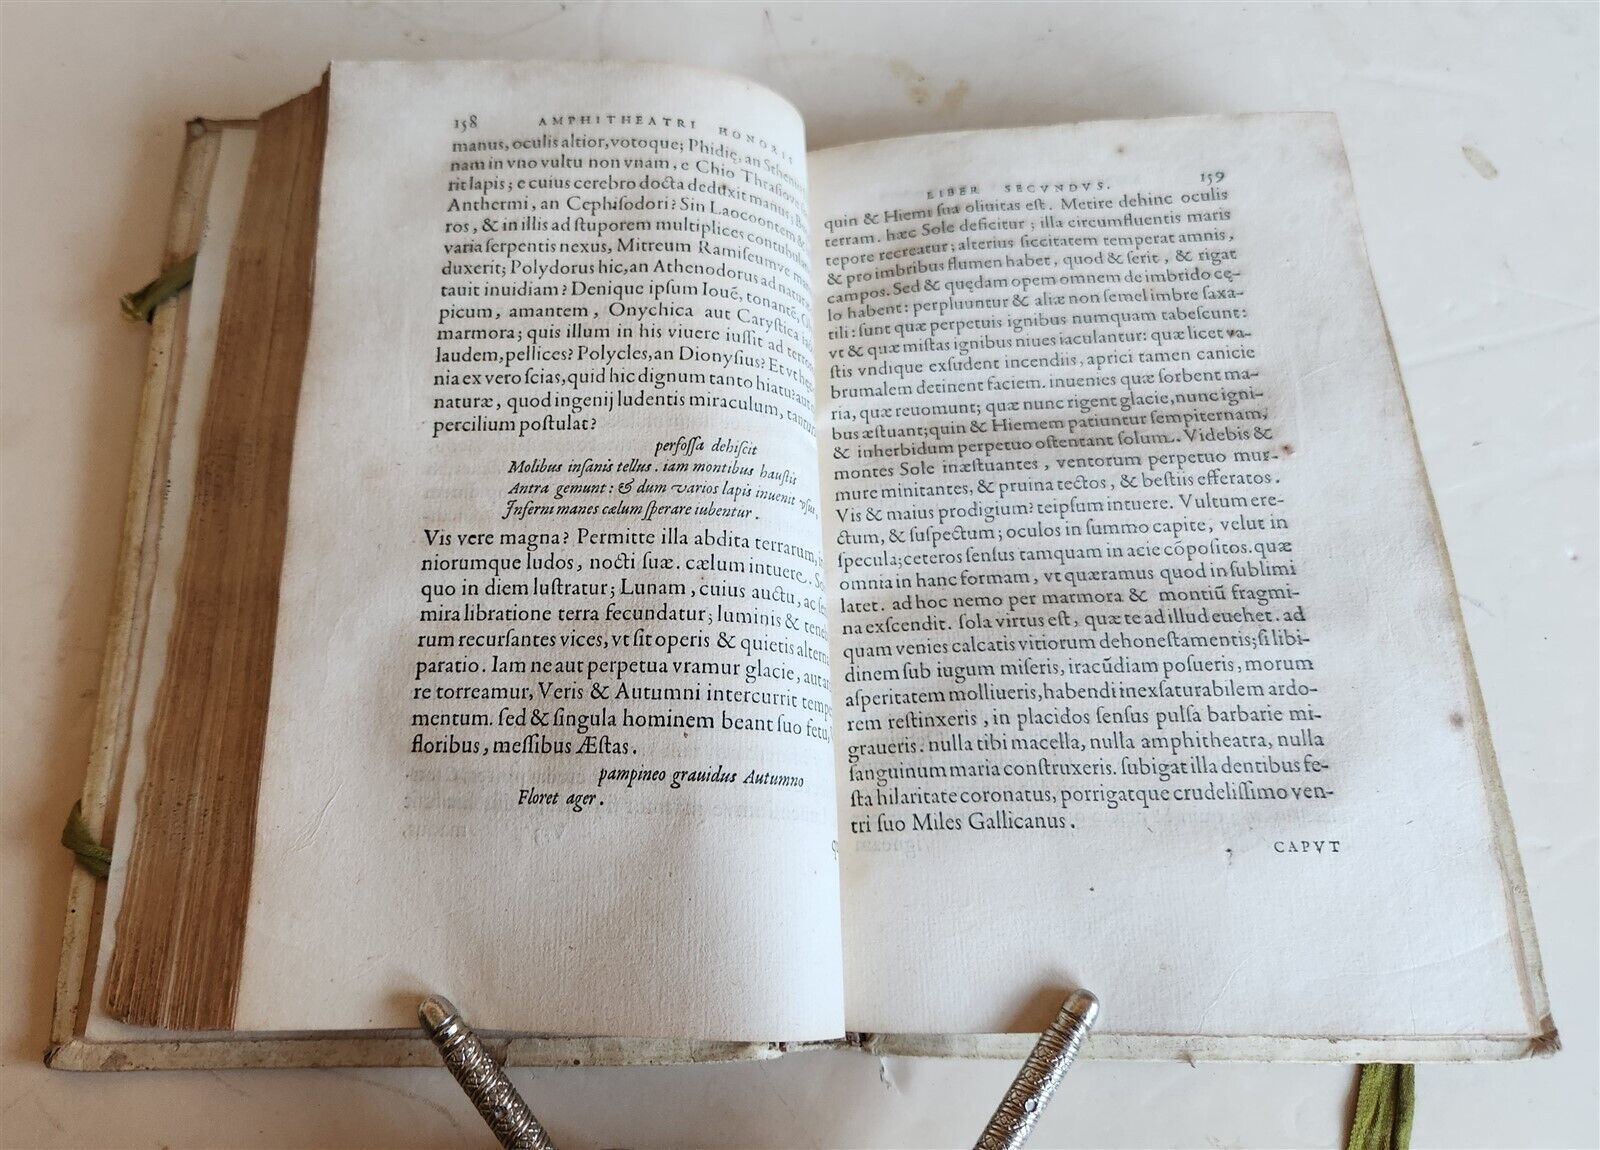 158 AMPHITHEATRI HONORIS
manus, oculis altior, votoque; Phidię, an
nam in vno vultu non vnam, e Chio Thrasiove
rit lapis; e cuius cerebro docta deduxit manus;
Anthermi, an Cephisodori? Sin Laocoontem &
ros, & in illis ad stuporem multiplices
varia serpentis nexus, Mitreum Ramiseumve
duxerit; Polydorus hic, an Athenodorus ad
tauit inuidiam? Denique ipsum Ioué, tonanté,
picum, amantem, Onychica aut Carystica
marmora; quis illum in his viuere iussit ad
laudem, pellices? Polycles, an Dionysius? Et vt
nia ex vero scias, quid hic dignum tanto hiatu?
naturæ, quod ingenij ludentis miraculum,
percilium postulat?
perfossa dehiscit
Molibus insanis tellus. iam montibus haustis
Antra gemunt: & dum varios lapis inuenit vsus,
Inferni manes cælum sperare iubentur.
Vis vere magna? Permitte illa abdita terrarum,
niorumque ludos, nocti suæ. cælum intuere.
quo in diem lustratur; Lunam, cuius auctu, ac
mira libratione terra fecundatur; luminis &
rum recursantes vices, vt sit operis & quietis
paratio. Iam ne aut perpetua vramur glacie, aut
re torreamur, Veris & Autumni intercurrit
mentum. sed & singula hominem beant suo fetu,
floribus, messibus Æstas.
pampineo grauidus Autumno
Floret ager.
LIBER SECVNDVS. 159
quin & Hiemi sua oliuitas est. Metire dehinc oculis
terram. hæc Sole deficitur; illa circumfluentis maris
tepore recreatur; alterius siccitatem temperat amnis,
& pro imbribus flumen habet, quod & serit, & rigat
campos. Sed & quędam opem omnem de imbrido cę-
lo habent: perpluuntur & aliæ non semel imbre saxa-
tili: sunt quæ perpetuis ignibus numquam tabescunt:
vt & quæ mistas ignibus niues iaculantur: quæ licet va-
stis vndique exsudent incendiis, aprici tamen canicie
brumalem detinent faciem. inuenies quæ sorbent ma-
ria, quæ reuomunt; quæ nunc rigent glacie, nunc igni-
bus æstuant; quin & Hiemem patiuntur sempiternam,
& inherbidum perpetuo ostentant solum. Videbis &
montes Sole inæstuantes, ventorum perpetuo mur-
mure minitantes, & pruina tectos, & bestiis efferatos.
Vis & maius prodigium? teipsum intuere. Vultum ere-
ctum, & suspectum; oculos in summo capite, velut in
specula; ceteros sensus tamquam in acie cōpositos. quæ
omnia in hanc formam, vt quæramus quod in sublimi
latet. ad hoc nemo per marmora & montiū fragmi-
na exscendit. sola virtus est, quæ te ad illud euehet. ad
quam venies calcatis vitiorum dehonestamentis; si libi-
dinem sub iugum miseris, iracūdiam posueris, morum
asperitatem molliueris, habendi inexsaturabilem ardo-
rem restinxeris, in placidos sensus pulsa barbarie mi-
graueris. nulla tibi macella, nulla amphitheatra, nulla
sanguinum maria construxeris. subigat illa dentibus fe-
sta hilaritate coronatus, porrigatque crudelissimo ven-
tri suo Miles Gallicanus.
CAPVT